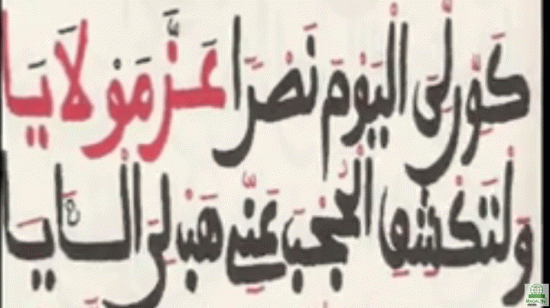 كَوِّرْ لِيَ الْيَوْمَ نَصْرًا عَزَّ مَوْلَايَا
وَلْتَكْشِفِ الْحُجْبَ عَنِّي هَبْ لِيَ